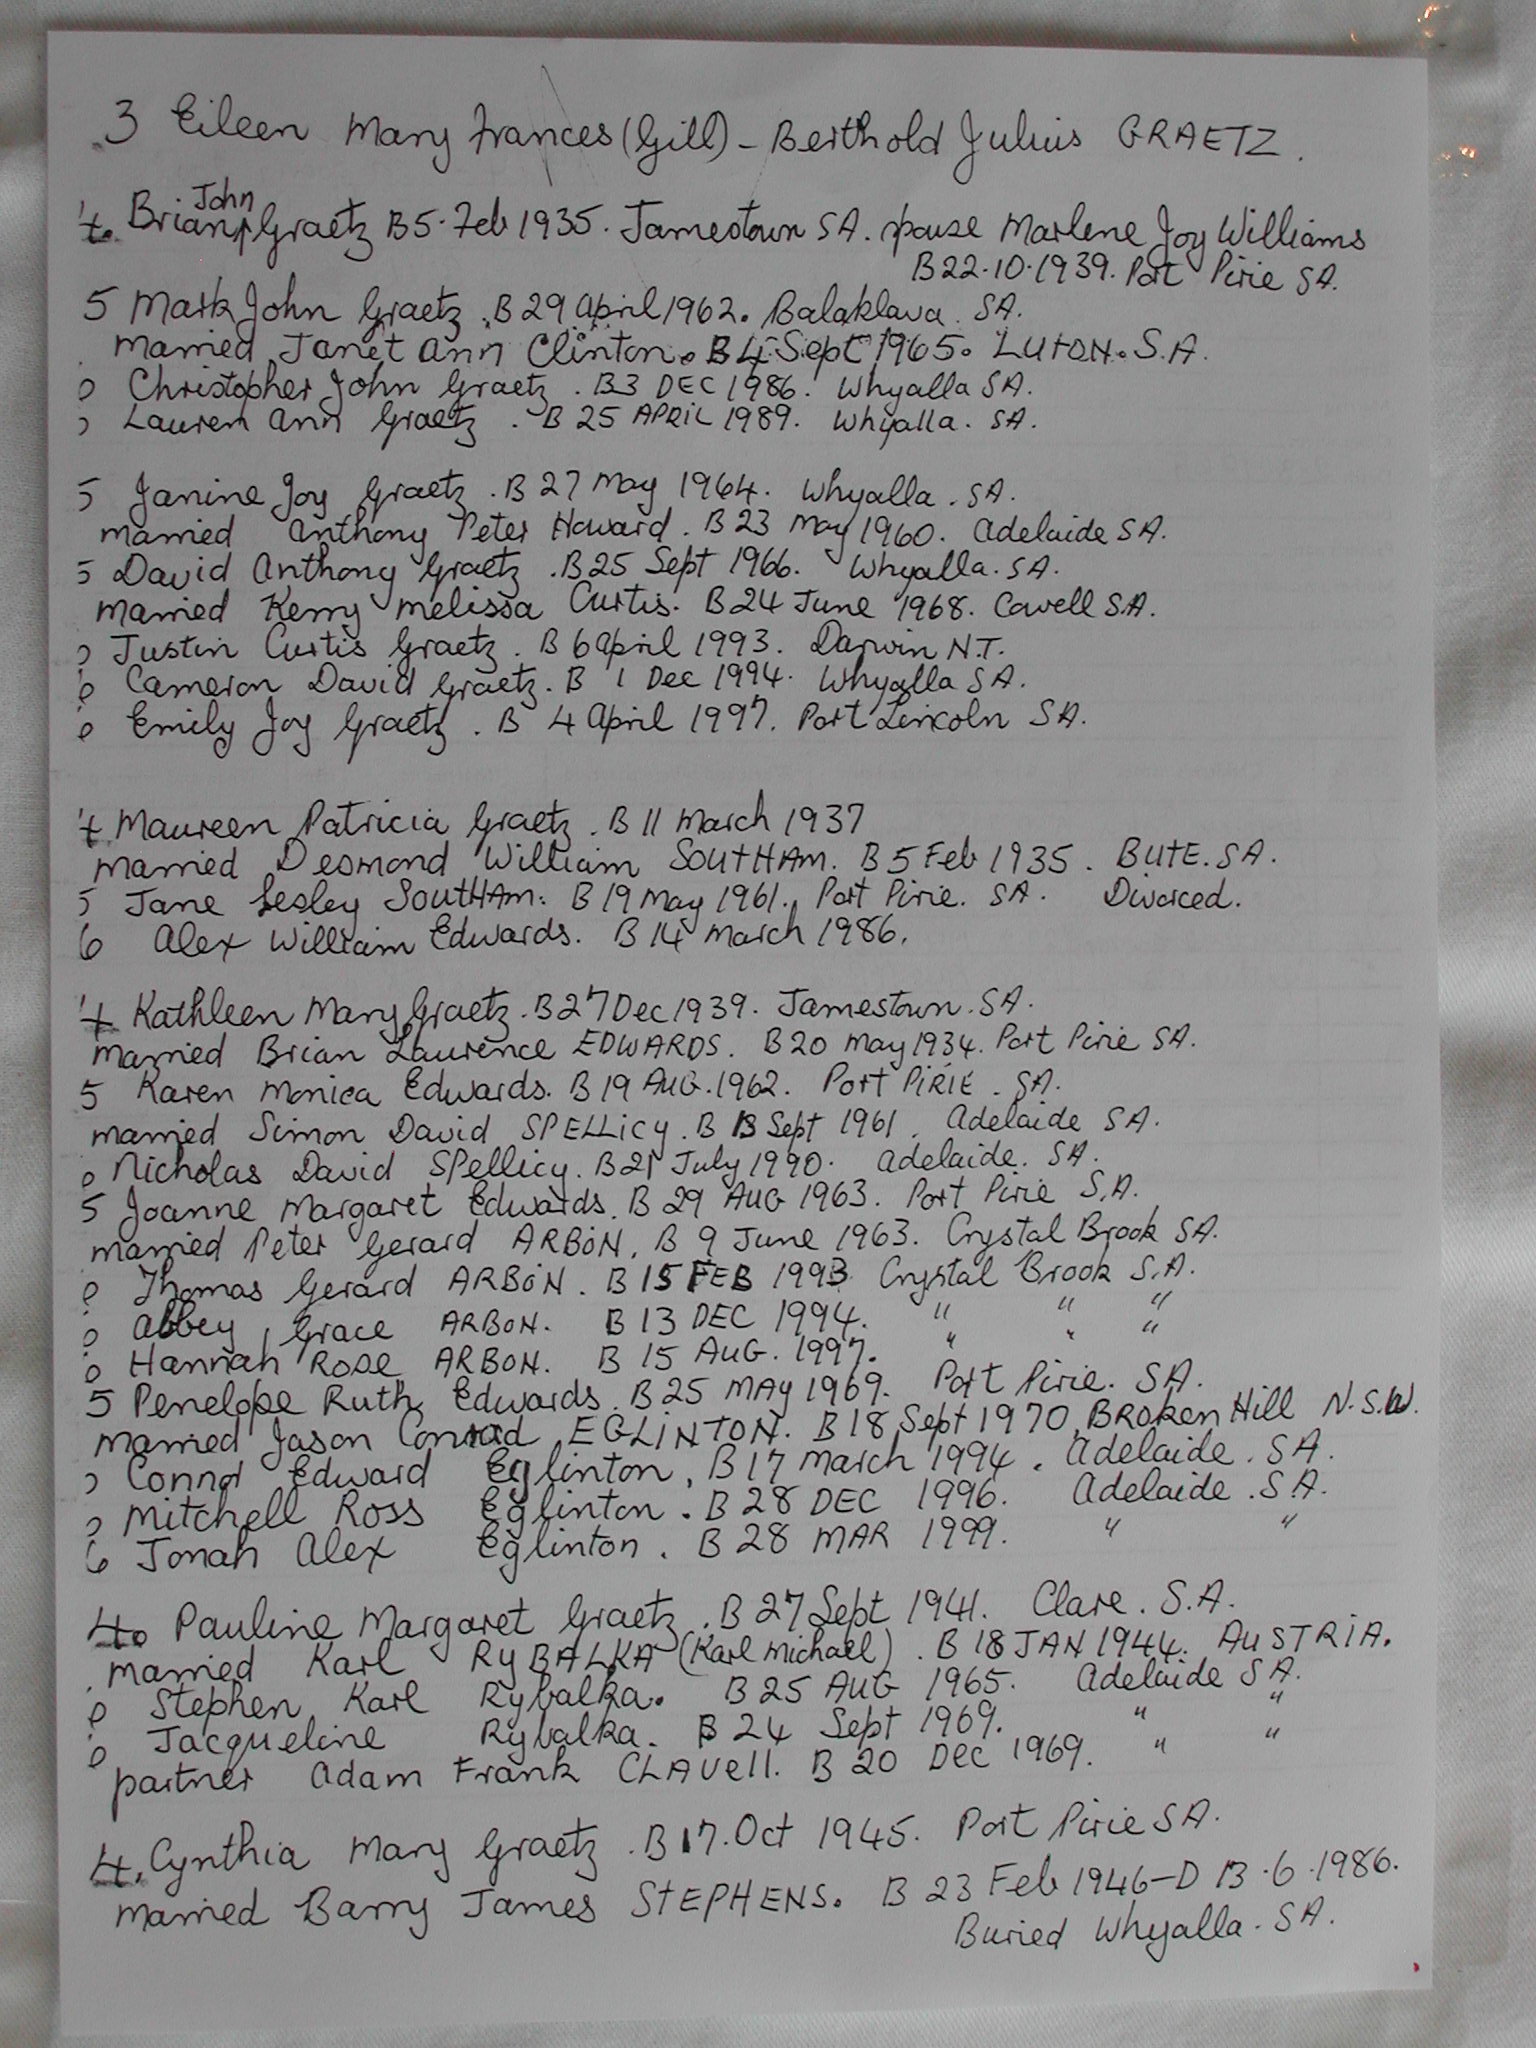 3 Eileen Mary Frances (Gill) - Berthold Julius GRAETZ.
4. Brian John Graetz B5. Feb 1935. Jamestown SA. spouse Marlene Joy Williams
B22.10.1939. Port Pirie SA.
5 Mark John Graetz. B 29 April 1962. Balaklava. SA.
married Janet Ann Clinton. B 4 Sept 1965. LUTON. S.A.
6 Christopher John Graetz. B3 DEC 1986. Whyalla SA.
6 Lauren Ann Graetz. B 25 APRIL 1989. Whyalla. SA.
5 Janine Joy Graetz. B 27 May 1964. Whyalla. SA.
married Anthony Peter Howard. B 23 May 1960. Adelaide SA.
5 David Anthony Graetz. B25 Sept 1966. Whyalla. SA.
married Kerry Melissa Curtis. B24 June 1968. Cowell SA.
6 Justin Curtis Graetz. B 6 April 1993. Darwin N.T.
6 Cameron David Graetz. B 1 Dec 1994. Whyalla SA.
6 Emily Joy Graetz. B 4 April 1997. Port Lincoln SA.
4 Maureen Patricia Graetz. B 11 March 1937
married Desmond William SOUTHAM. B 5 Feb 1935. BUTE. SA.
5 Jane Lesley SOUTHAM. B 19 May 1961. Port Pirie. SA. Divorced.
6 Alex William Edwards. B 14 March 1986.
4 Kathleen Mary Graetz. B27 Dec 1939. Jamestown. SA.
married Brian Laurence EDWARDS. B 20 May 1934. Port Pirie SA.
5 Karen Monica Edwards. B 19 AUG. 1962. PORT PIRIE. SA.
married Simon David SPELLICY. B 13 Sept 1961. Adelaide SA.
6 Nicholas David Spellicy. B21 July 1990. Adelaide. SA.
5 Joanne Margaret Edwards. B 29 AUG 1963. Port Pirie S.A.
married Peter Gerard ARBON. B 9 June 1963. Crystal Brook SA.
6 Thomas Gerard ARBON. B 15 FEB 1993 Crystal Brook S.A.
6 Abbey Grace ARBON. B 13 DEC 1994. " " "
6 Hannah Rose ARBON. B 15 AUG. 1997. " " "
5 Penelope Ruth Edwards. B 25 MAY 1969. Port Pirie. SA.
married Jason Conrad EGLINTON. B 18 Sept 1970, BROKEN Hill N.S.W.
6 Connor Edward Eglinton. B 17 March 1994. Adelaide. SA.
6 Mitchell Ross Eglinton. B 28 DEC 1996. Adelaide. S.A.
6 Jonah Alex Eglinton. B 28 MAR 1999. " "
4. Pauline Margaret Graetz. B 27 Sept 1941. Clare. S.A.
married Karl RYBALKA (Karl Michael). B 18 JAN 1944. AUSTRIA.
6 Stephen Karl Rybalka. B 25 AUG 1965. Adelaide SA.
6 Jacqueline Rybalka. B 24 Sept 1969. " "
partner Adam Frank CLAVELL. B 20 Dec 1969. " "
4. Cynthia Mary Graetz. B 17. Oct 1945. Port Pirie SA.
married Barry James STEPHENS. B 23 Feb 1946-D 13.6.1986.
Buried Whyalla. SA.